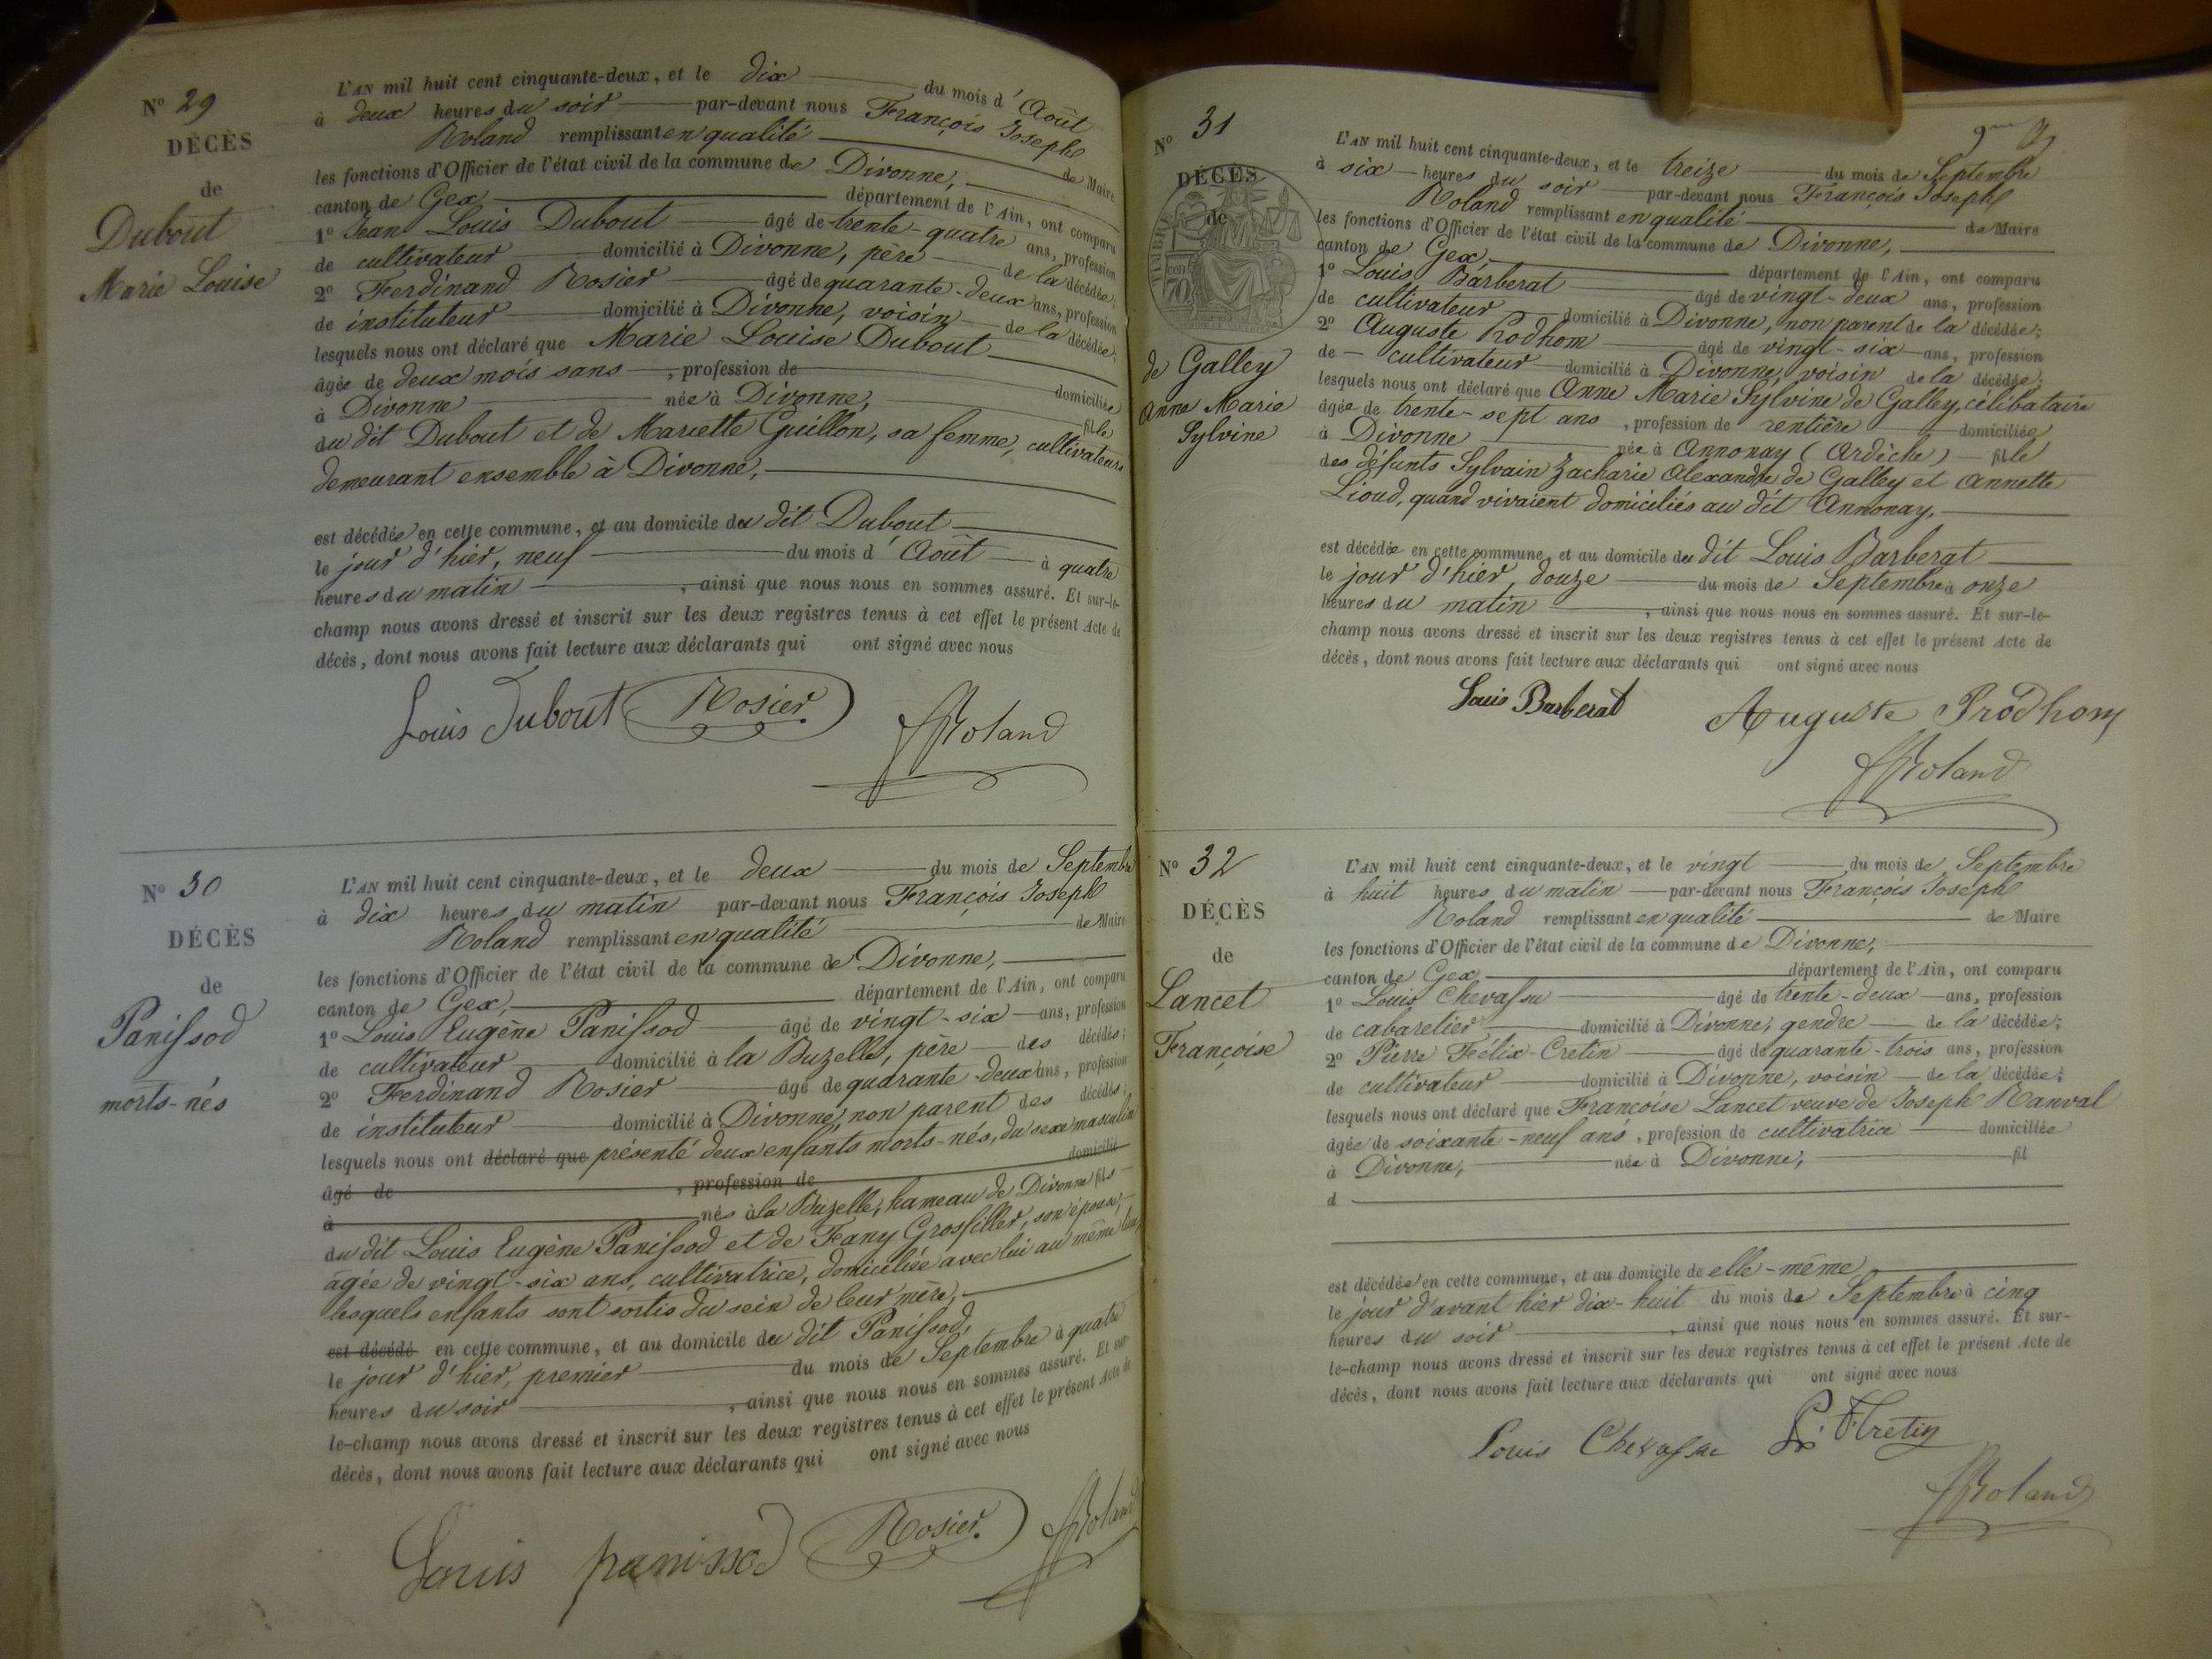 N° 29
DÉCÈS
de
Dubout
Marie Louise
L'AN mil huit cent cinquante-deux, et le dix du mois d'Août
à deux heures du soir par-devant nous François Joseph
Roland remplissant en qualité de Maire
les fonctions d'Officier de l'état civil de la commune de Divonne,
canton de Gex, département de l'Ain, ont comparu
1° Jean Louis Dubout âgé de trente-quatre ans, profession
de cultivateur domicilié à Divonne, père de la décédée;
2° Ferdinand Rosier âgé de quarante-deux ans, profession
de instituteur domicilié à Divonne, voisin de la décédée;
lesquels nous ont déclaré que Marie Louise Dubout
âgée de deux mois sans , profession de domiciliée
à Divonne née à Divonne, fille
du dit Dubout et de Marcette Guillon, sa femme, cultivateurs
demeurant ensemble à Divonne,
est décédée en cette commune, et au domicile du dit Dubout
le jour d'hier, neuf du mois d'Août à quatre
heures du matin , ainsi que nous nous en sommes assuré. Et sur-le-
champ nous avons dressé et inscrit sur les deux registres tenus à cet effet le présent Acte de
décès, dont nous avons fait lecture aux déclarants qui ont signé avec nous
Louis Dubout Rosier. Roland
N° 30
DÉCÈS
de
Panissod
morts-nés
L'AN mil huit cent cinquante-deux, et le deux du mois de Septembre
à dix heures du matin par-devant nous François Joseph
Roland remplissant en qualité de Maire
les fonctions d'Officier de l'état civil de la commune de Divonne,
canton de Gex, département de l'Ain, ont comparu
1° Louis Eugène Panissod âgé de vingt-six ans, profession
de cultivateur domicilié à la Buzelle, père des décédés;
2° Ferdinand Rosier âgé de quarante-deux ans, profession
de instituteur domicilié à Divonne, non parent des décédés;
lesquels nous ont déclaré que présenté deux enfants morts-nés, du sexe masculin
âgé de , profession de domicilié
à nés à la Buzelle, hameau de Divonne fils
du dit Louis Eugène Panissod et de Feany Grosfiller, son épouse,
âgée de vingt-six ans, cultivatrice, domiciliée avec lui au même lieu,
lesquels enfants sont sortis du sein de leur mère,
est décédé en cette commune, et au domicile du dit Panissod,
le jour d'hier, premier du mois de Septembre à quatre
heures du soir , ainsi que nous nous en sommes assuré. Et sur-
le-champ nous avons dressé et inscrit sur les deux registres tenus à cet effet le présent Acte de
décès, dont nous avons fait lecture aux déclarants qui ont signé avec nous
Louis panissod Rosier. Roland
9me
N° 31
DÉCÈS
de
TIMBRE
70
de Galley
Anne Marie
Sylvine
L'AN mil huit cent cinquante-deux, et le treize du mois de Septembre
à six heures du soir par-devant nous François Joseph
Roland remplissant en qualité de Maire
les fonctions d'Officier de l'état civil de la commune de Divonne,
canton de Gex, département de l'Ain, ont comparu
1° Louis Barberat âgé de vingt-deux ans, profession
de cultivateur domicilié à Divonne, non parent de la décédée;
2° Auguste Prodhom âgé de vingt-six ans, profession
de cultivateur domicilié à Divonne, voisin de la décédée;
lesquels nous ont déclaré que Anne Marie Sylvine de Galley, célibataire
âgée de trente-sept ans , profession de rentière domiciliée
à Divonne née à Annonay (Ardèche) fille
des défunts Sylvain Zacharie Alexandre de Galley et Annette
Lioud, quand vivaient domiciliés au dit Annonay,
est décédée en cette commune, et au domicile du dit Louis Barberat
le jour d'hier, douze du mois de Septembre à onze
heures du matin , ainsi que nous nous en sommes assuré. Et sur-le-
champ nous avons dressé et inscrit sur les deux registres tenus à cet effet le présent Acte de
décès, dont nous avons fait lecture aux déclarants qui ont signé avec nous
Louis Barberat Auguste Prodhom
Roland
N° 32
DÉCÈS
de
Lancet
Françoise
L'AN mil huit cent cinquante-deux, et le vingt du mois de Septembre
à huit heures du matin par-devant nous François Joseph
Roland remplissant en qualité de Maire
les fonctions d'Officier de l'état civil de la commune de Divonne,
canton de Gex, département de l'Ain, ont comparu
1° Louis Chevassu âgé de trente-deux ans, profession
de cabaretier domicilié à Divonne, gendre de la décédée;
2° Pierre Félix Cretin âgé de quarante-trois ans, profession
de cultivateur domicilié à Divonne, voisin de la décédée;
lesquels nous ont déclaré que Françoise Lancet veuve de Joseph Ranval
âgée de soixante-neuf ans, profession de cultivatrice domiciliée
à Divonne, née à Divonne, fil
d
est décédée en cette commune, et au domicile de elle-même
le jour d'avant hier dix-huit du mois de Septembre à cinq
heures du soir , ainsi que nous nous en sommes assuré. Et sur-
le-champ nous avons dressé et inscrit sur les deux registres tenus à cet effet le présent Acte de
décès, dont nous avons fait lecture aux déclarants qui ont signé avec nous
Louis Chevassu P. F. Cretin
Roland